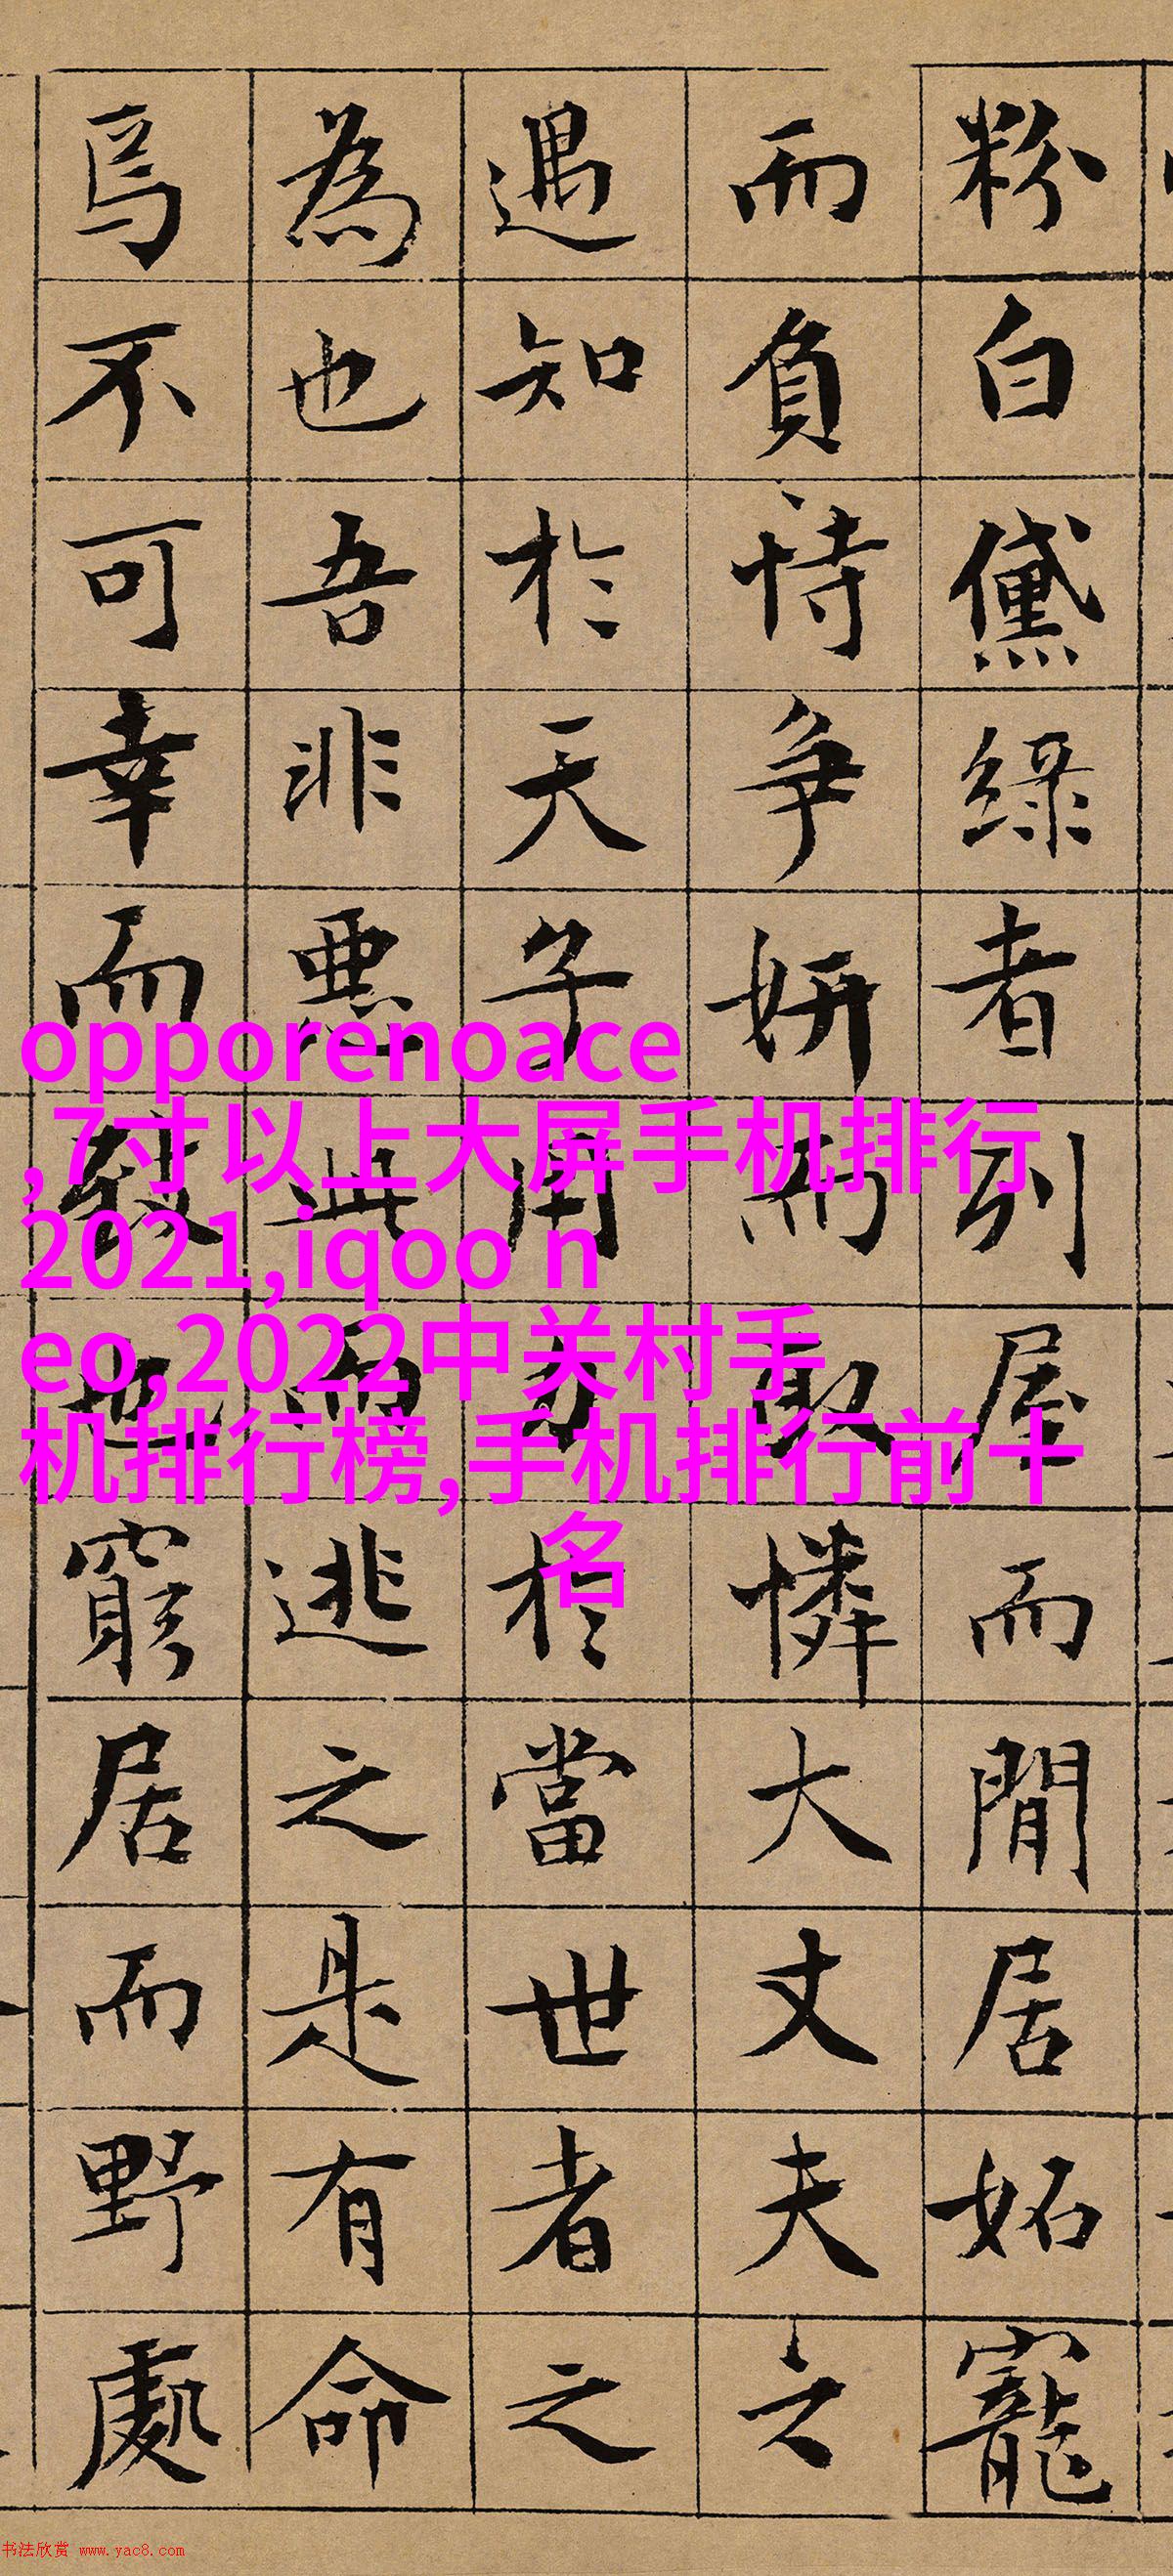 粉白黛綠者列屋而閒居妬寵
而負恃爭妍而取憐大丈夫之
遇知於天子用力於當世者之
為也吾非惡此而逃之是有命
焉不可幸而致也窮居而野處
opporenoace
,7寸以上大屏手机排行
2021,iqoo n
eo,2022中关村手
机排行榜,手机排行前十
名
书法欣赏 www.yac8.com